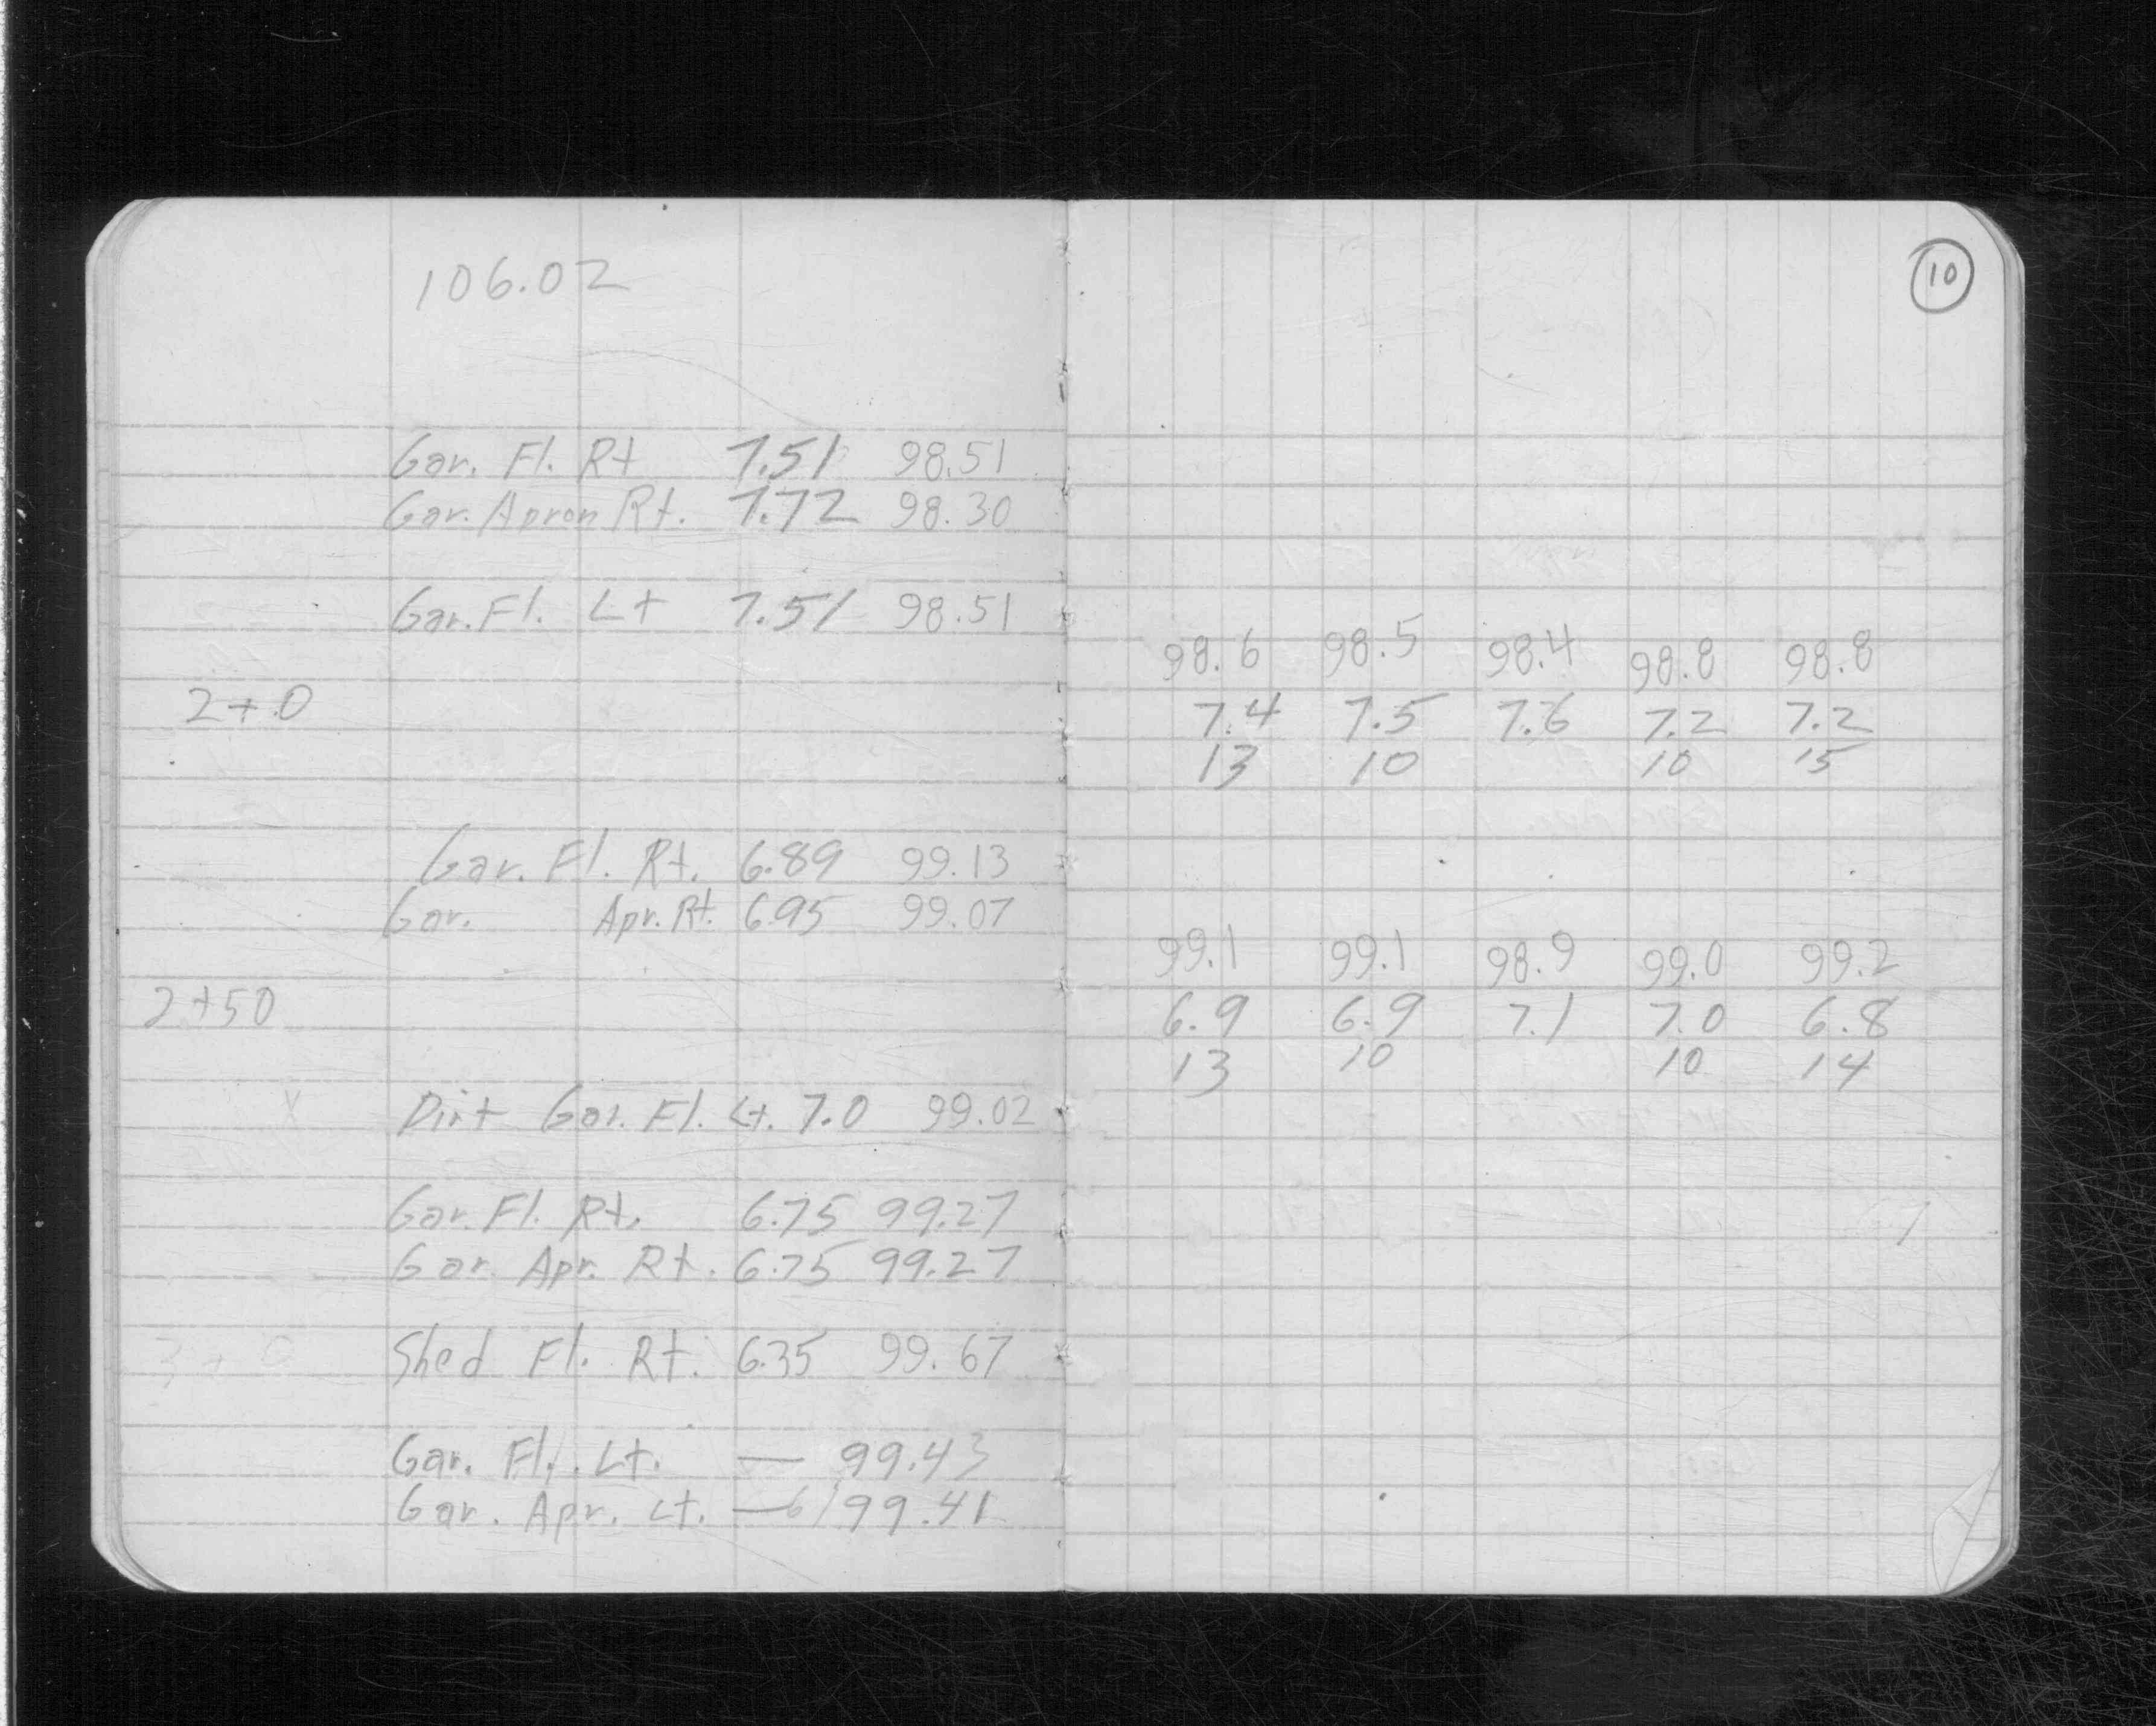 106.02
Gar. Fl. Rt 7.51 98.51
Gar. Apron Rt. 7.72 98.30
Gar. Fl. Lt 7.51 98.51
2+0
Gar. Fl. Rt. 6.89 99.13
Gar. Apr. Rt. 6.95 99.07
2+50
X Dirt Gar. Fl. Lt. 7.0 99.02
Gar. Fl. Rt. 6.75 99.27
Gar. Apr. Rt. 6.75 99.27
3+0 Shed Fl. Rt. 6.35 99.67
Gar. Fl. Lt. — 99.43
Gar. Apr. Lt. — 99.41
10
98.6 98.5 98.4 98.8 98.8
7.4 7.5 7.6 7.2 7.2
13 10 10 15
99.1 99.1 98.9 99.0 99.2
6.9 6.9 7.1 7.0 6.8
13 10 10 14